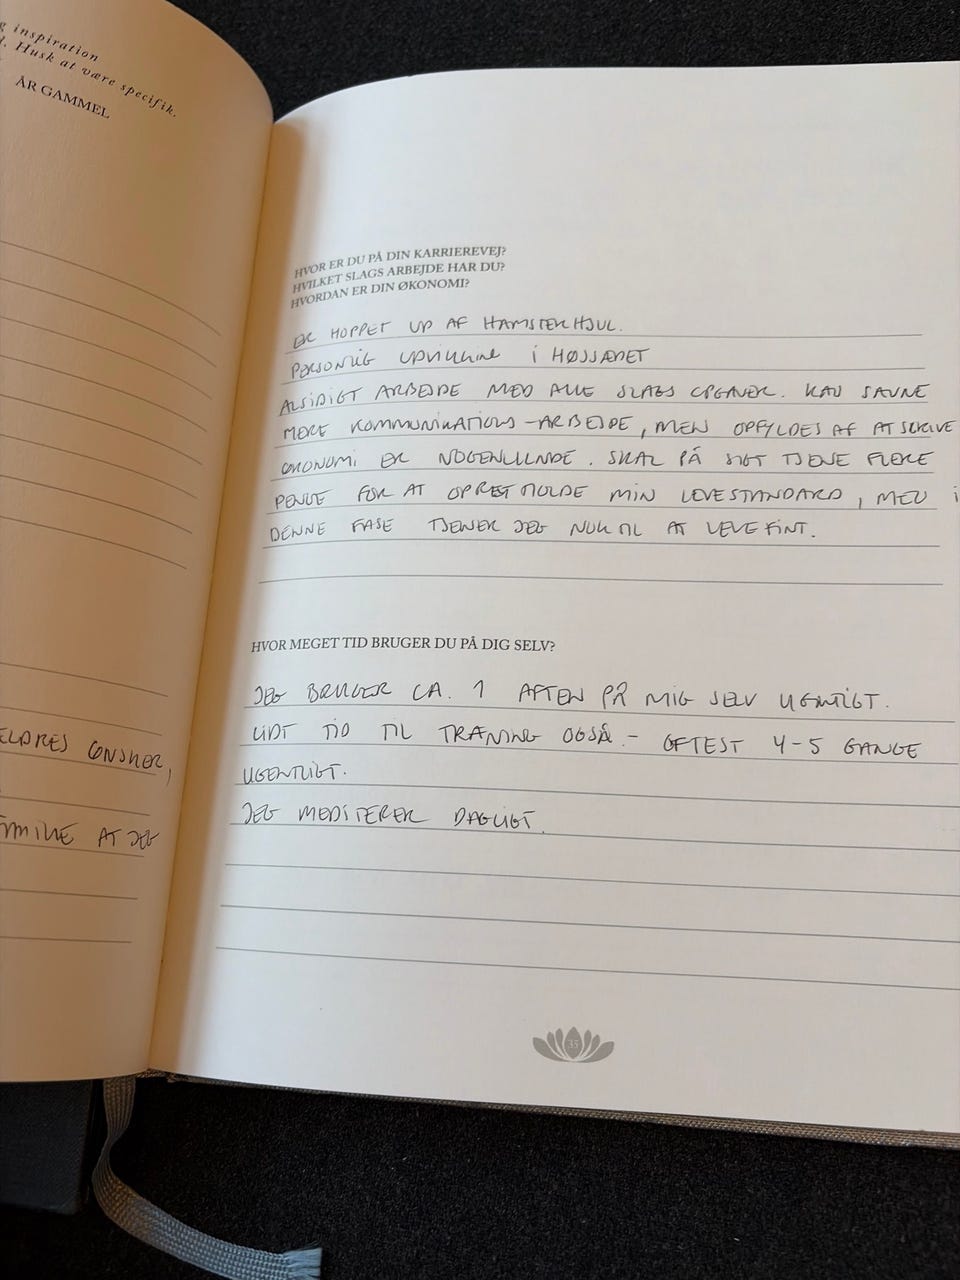 g inspiration
d. Husk at være specifik.
ÅR GAMMEL
ELDRES ØNSKER,
AT JEG
HVOR ER DU PÅ DIN KARRIEREVEJ?
HVILKET SLAGS ARBEJDE HAR DU?
HVORDAN ER DIN ØKONOMI?
ER HOPPET UD AF HAMSTERHJUL.
PERSONLIG UDVIKLING I HØJSÆDET
ALSIDIGT ARBEJDE MED ALLE SLAGS OPGAVER. KAN SAVNE
MERE KOMMUNIKATIONS-ARBEJDE, MEN OPFYLDES AF AT SKRIVE
ØKONOMI ER NOGENLUNDE. SKAL PÅ SIGT TJENE FLERE
PENGE FOR AT OPRETHOLDE MIN LEVESTANDARD, MEN I
DENNE FASE TJENER JEG NOK TIL AT LEVE FINT.
HVOR MEGET TID BRUGER DU PÅ DIG SELV?
JEG BRUGER CA. 1 AFTEN PÅ MIG SELV UGENTLIGT.
LIDT TID TIL TRÆNING OGSÅ - OFTEST 4-5 GANGE
UGENTLIGT.
JEG MEDITERER DAGLIGT.
35